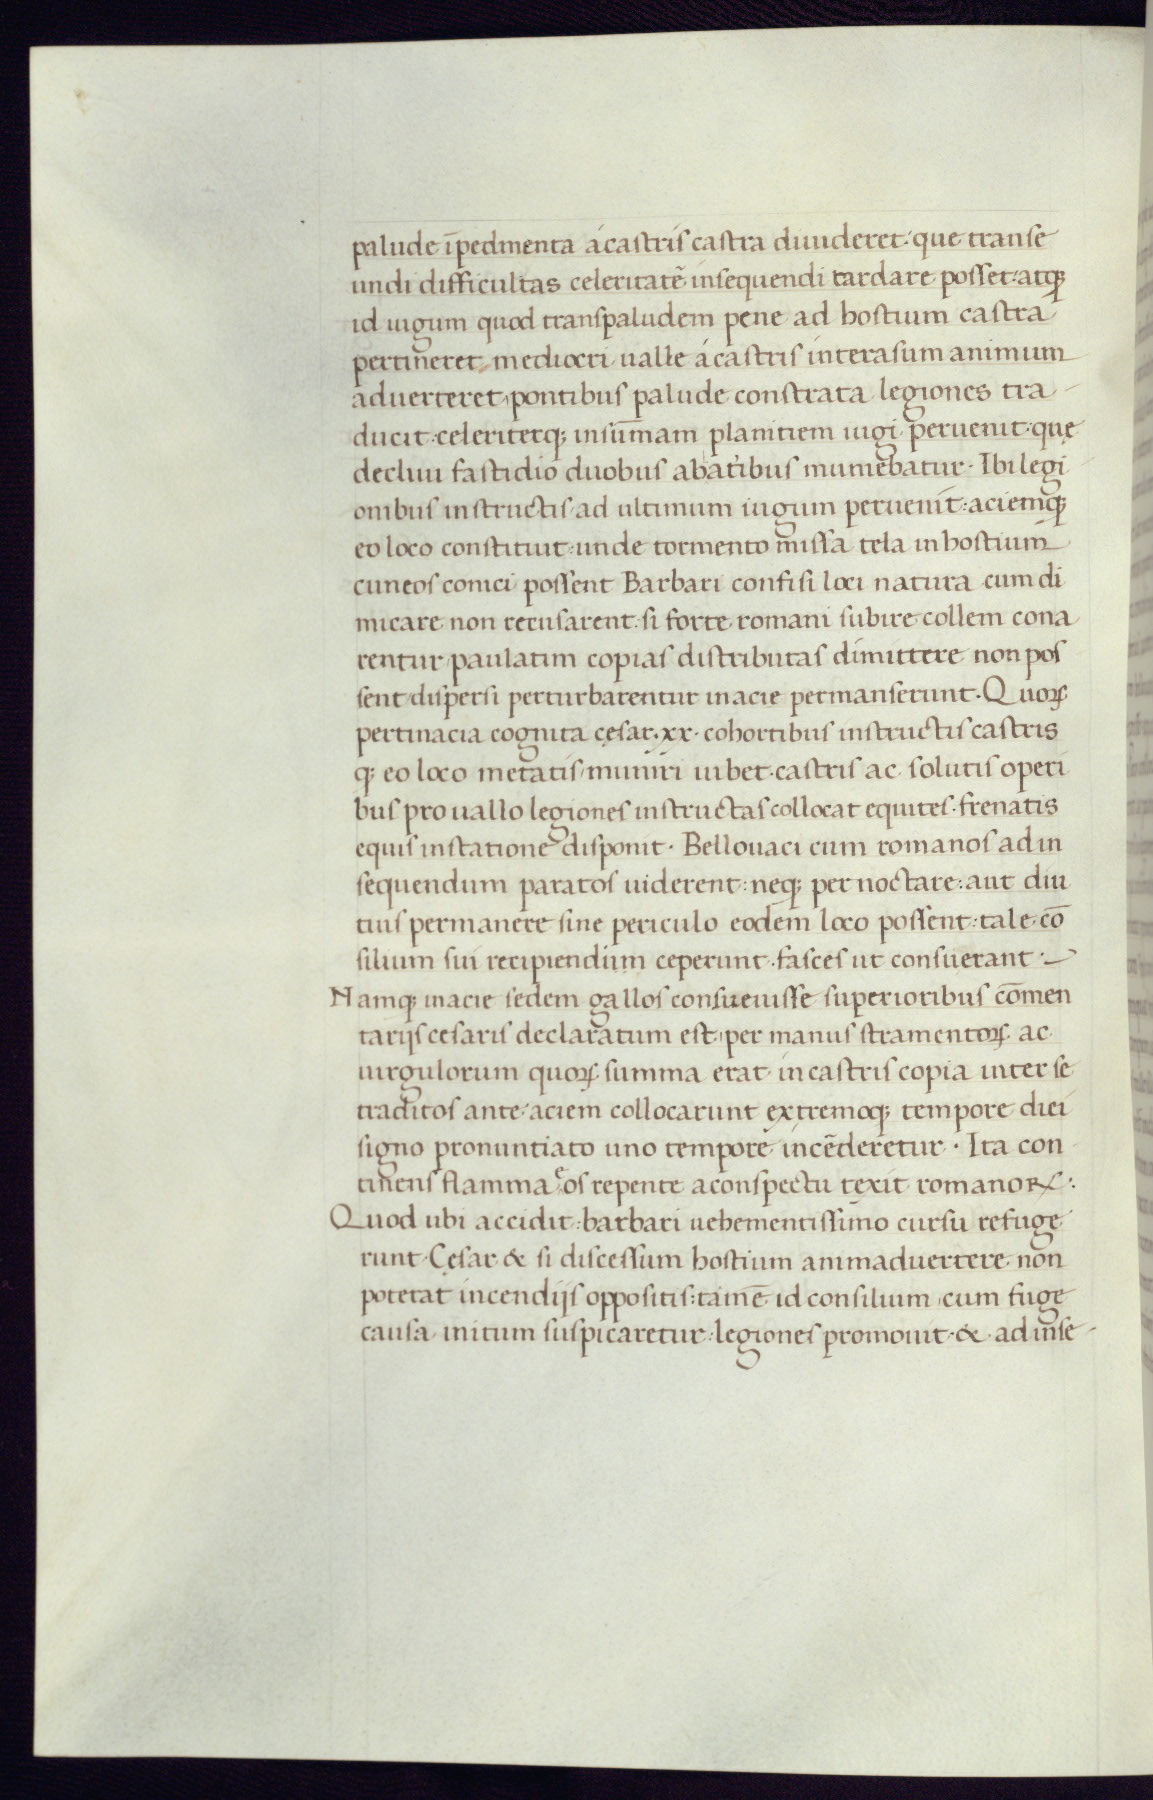 palude īpedmenta ácastris castra diuideret· que transe
undi difficultas celeritatē insequendi tardare posset: atq;
id iugum quod transpaludem pene ad hostium castra
pertineret mediocri ualle ácastris interasum animum
aduerteret, pontibus palude constrata legiones tra
ducit· celeriterq; insūmam planitiem iugi peruenit· quę
decliui fastidio duobus abatibus muniebatur· Ibi legi
onibus instructis· ad ultimum iugum peruenit: aciemq;
eo loco constituit: unde tormento missa tela in hostium
cuneos conici possent Barbari confisi loci natura cum di
micare non recusarent· si forte romani subire collem cona
rentur paulatim copias distributas dimittere non pos
sent dispersi perturbarentur in acie permanserunt· Quoꝝ
pertinacia cognita cęsar· xx· cohortibus instructis castris
q; eo loco metatis/ muniri iubet· castris ac solutis operi
bus pro uallo legiones instructas collocat equites· frenatis
equis in statione disponit· Bellouaci cum romanos ad in
sequendum paratos uiderent: neq; per noctare: aut diu
tius permanere sine periculo eodem loco possent: tale cō
silium sui recipiendium ceperunt· fasces ut consuerant·
Namq; in acie sedem gallos consueuisse superioribus cōmen
tarijs cesaris declaratum est, per manus stramentoꝝ ac
uirgulorum quoꝝ summa erat in castris copia inter se
traditos ante aciem collocarunt extremoq; tempore diei
signo pronuntiato uno tempore incēderetur· Ita con
tinens flamma eos repente a conspectu texit romanoꝝ:
Quod ubi accidit: barbari uehementissimo cursu refuge
runt· Cęsar & si discessum hostium animaduertere non
poterat incendijs oppositis: tamē id consilium cum fugę
causa initum suspicaretur: legiones promouit· & ad inse